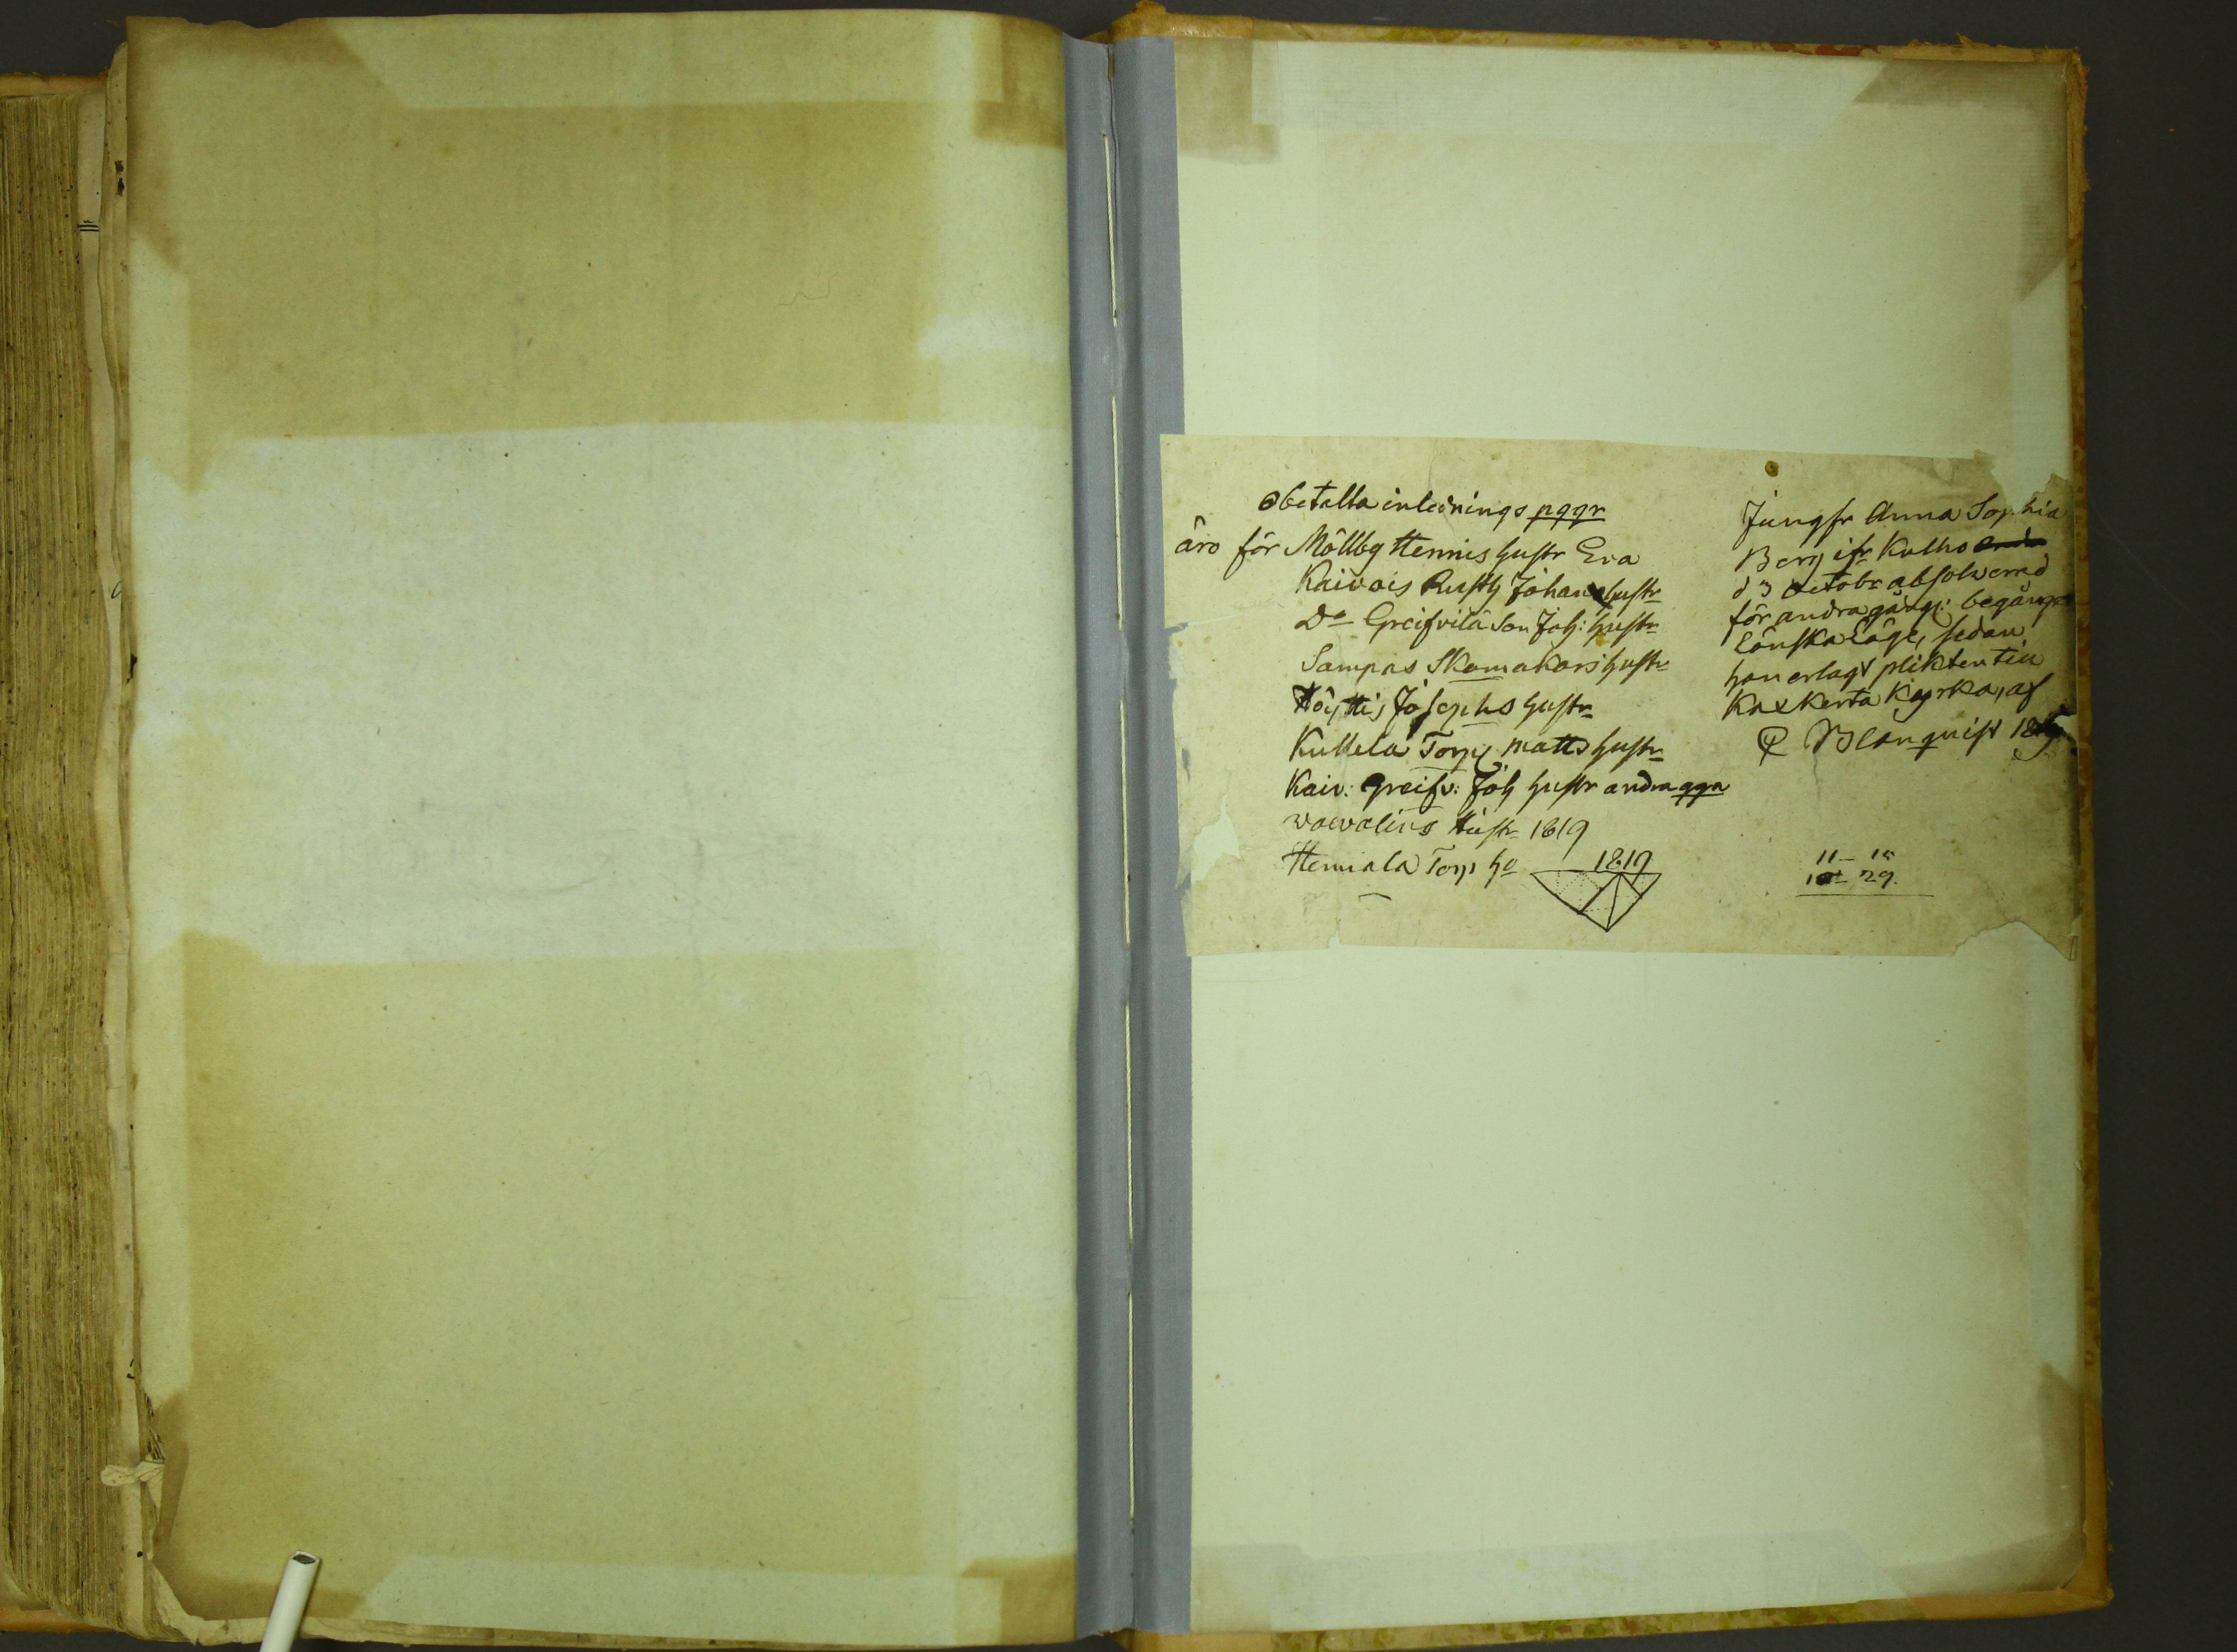 Obetalta inlednings pggr
äro för Mällbg Hennis hustr Eva
Kaivois Rusth Johans hustr
Do Greifvilä Son Joh: hustr
Sampas Skomakars hustr
Höyttis Josephs hustr
Kullela Torp Matts hustr
Kaiv: Greifv: Joh hustr andra gga
hustr 1819
Hemiala Torp ho 1819
Jungfr Anna Sophia
Berg ifr Kulho
d 3 Octobr absolverad
för andra gång: begång
Lönskaläge, sedan
hon erlagt plikten till
Kaxkerta Kyrka, af
Blonquist
11 - 18
10 - 29.